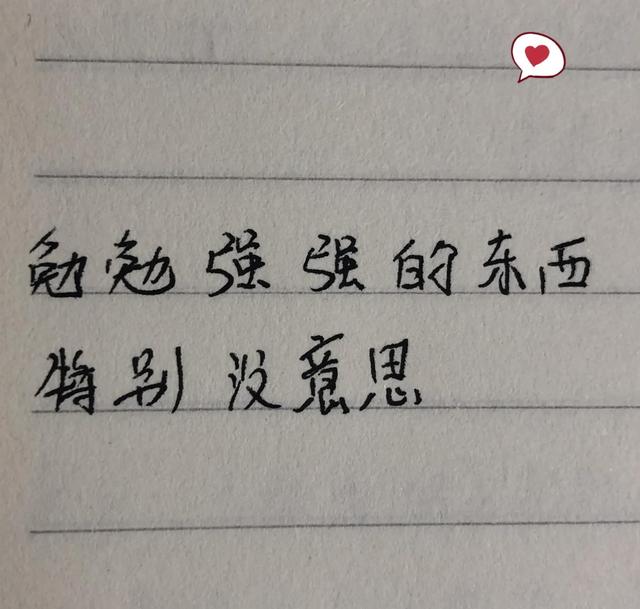 勉勉强强的东西
特别没意思